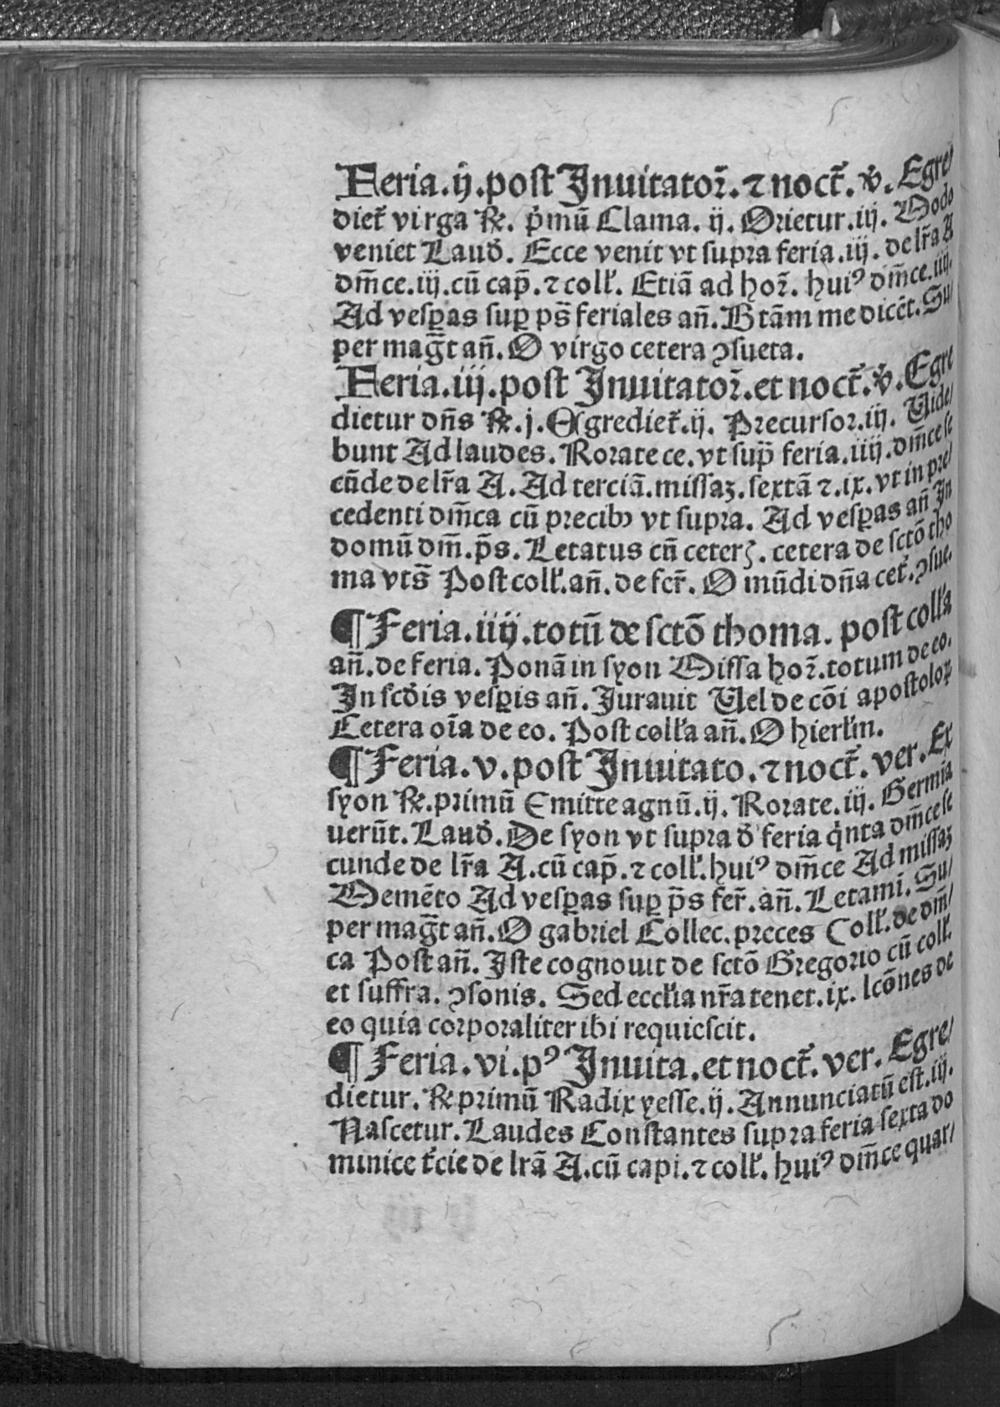 Feria.ij.post Inuitator̃.⁊ noct̃.v̾. Egre/
diet̃ virga ℟. p̾mũ Clama. ij. Orietur.iij. Modo
veniet Laud̾. Ecce venit vt supra feria.iij. de lr̃a A
dm̃ce.iij.cũ cap̃.⁊ coll̃. Etiã ad hor̃. huiꝰ dm̃ce.iiij.
Ad vesꝑas suꝑ ps̃ feriales añ. Btãm me dicẽt. Su/
per mag̃t añ. O virgo cetera ꝯsueta.
Feria.iij.post Inuitator̃.et noct̃.v̾. Egre
dietur dñs ℟.j. Egrediet̃.ij. Precursor.iij. Uide/
bunt Ad laudes. Rorate ce. vt sup̃ feria.iiij.dm̃ce se
cũde de lr̃a A. Ad terciã.missaꝫ.sextã ⁊.ix. vt in pre/
cedenti dm̃ca cũ precibꝫ vt supra. Ad vesꝑas añ In
domũ dm̃.p̃s. Letatus cũ ceterꝫ. cetera de sctõ tho
ma vts̃ Post coll̃.añ. de fer̃. O mũdi dña cet̃.ꝯsue.
¶ Feria.iiij.totũ de sctõ thoma. post coll̃a
añ.de feria. Ponã in syon Missa hor̃.totum de eo.
In scd̾is vesꝑis añ. Jurauit Uel de cõi apostoloꝝ
Cetera oĩa de eo. Post coll̃a añ. O hierl̃m.
¶ Feria.v.post Inuitato.⁊ noct̃.ver. Ex
syon ℟.primũ Emitte agnũ.ij. Rorate.iij. Germia
uerũt. Laud̾. De syon vt supra d̾ feria q̾nta dm̃ce se
cunde de lr̃a A.cũ cap̃.⁊ coll̃.huiꝰ dm̃ce Ad missaꝫ
Memẽto Ad vesꝑas suꝑ p̃s fer̃.añ. Letami. Su/
per mag̃t añ. O gabriel Collec.preces Coll̃.de dm̃/
ca Post añ. Iste cognouit de sctõ Gregorio cũ coll̃.
et suffra. ꝯsonis. Sed eccl̃ia nr̃a tenet.ix. lcõnes de
eo quia corporaliter ibi requiescit.
¶ Feria.vi.pꝰ Inuita.et noct̃.ver. Egre/
dietur. ℟ primũ Radix yesse.ij. Annunciatũ est.iij.
Nascetur. Laudes Constantes supra feria sexta do
minice t̃cie de lrã A.cũ capi.⁊ coll̃. huiꝰ dm̃ce quar/